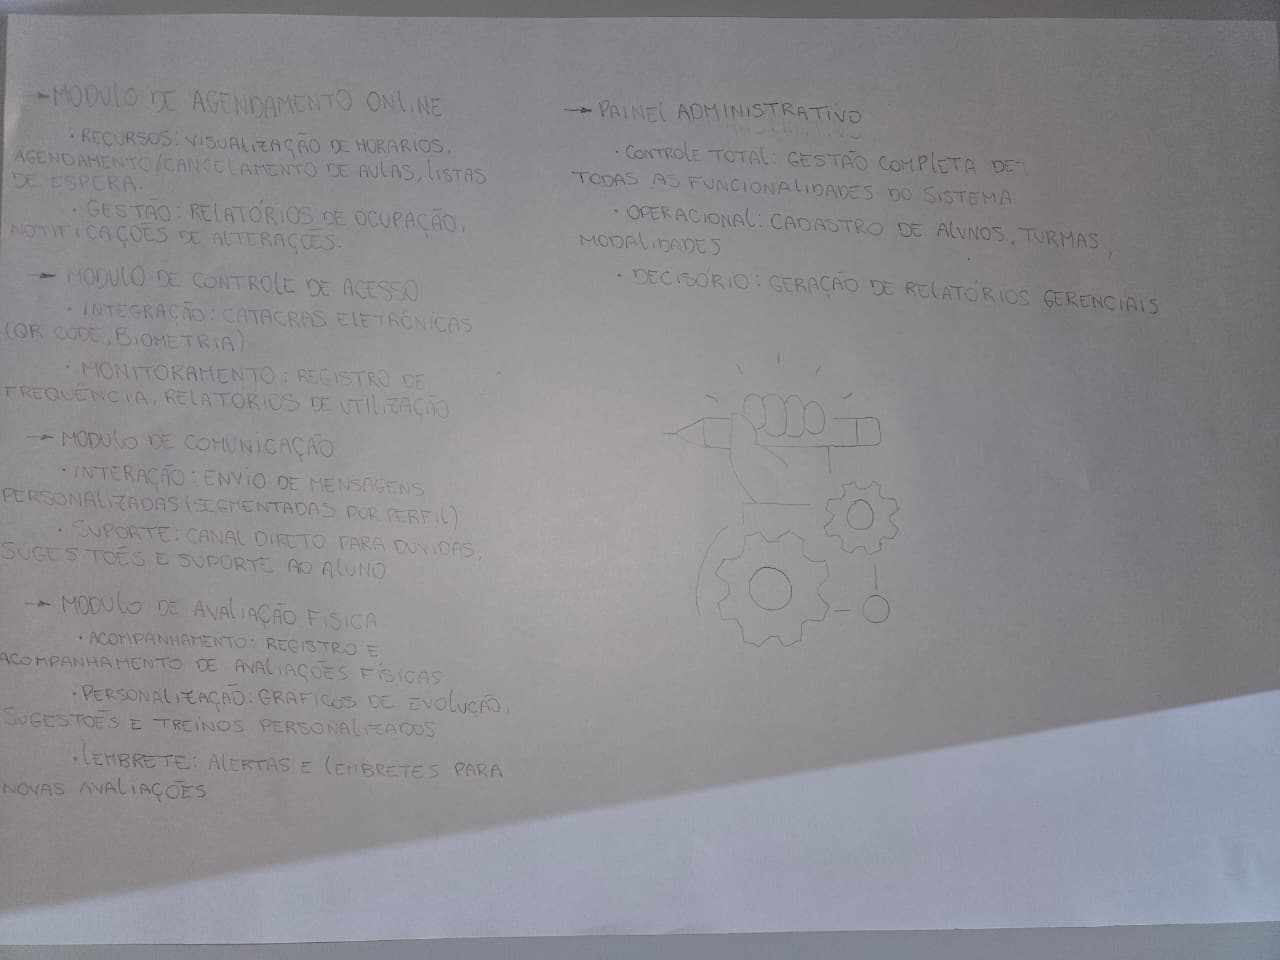 → MODULO DE AGENDAMENTO ONLINE
• RECURSOS: VISUALIZAÇÃO DE HORARIOS,
AGENDAMENTO/CANCELAMENTO DE AULAS, LISTAS
DE ESPERA.
• GESTÃO: RELATÓRIOS DE OCUPAÇÃO,
NOTIFICAÇÕES DE ALTERAÇÕES.
→ MODULO DE CONTROLE DE ACESSO
• INTEGRAÇÃO: CATACRAS ELETRÔNICAS
(QR CODE, BIOMETRIA)
• MONITORAMENTO: REGISTRO DE
FREQUÊNCIA, RELATORIOS DE UTILIZAÇÃO
→ MODULO DE COMUNICAÇÃO
• INTERAÇÃO: ENVIO DE MENSAGENS
PERSONALIZADAS (SEGMENTADAS POR PERFIL)
• SUPORTE: CANAL DIRETO PARA DUVIDAS,
SUGESTOÊS E SUPORTE AO ALUNO
→ MODULO DE AVALIAÇÃO FISICA
• ACOMPANHAMENTO: REGISTRO E
ACOMPANHAMENTO DE AVALIAÇÕES FÍSICAS
• PERSONALIZAÇÃO: GRÁFICOS DE EVOLUÇÃO,
SUGESTOÊS E TREINOS PERSONALIZADOS
• LEMBRETE: ALERTAS E LEMBRETES PARA
NOVAS AVALIAÇÕES
→ PAINEL ADMINISTRATIVO
• CONTROLE TOTAL: GESTÃO COMPLETA DE
TODAS AS FUNCIONALIDADES DO SISTEMA
• OPERACIONAL: CADASTRO DE ALUNOS, TURMAS,
MODALIDADES
• DECISÓRIO: GERAÇÃO DE RELATÓRIOS GERENCIAIS